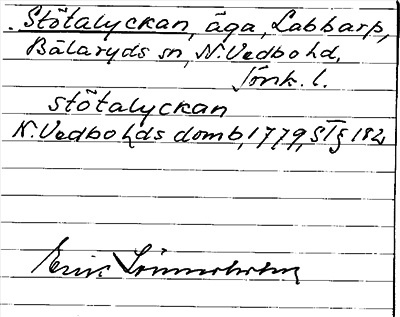 Stötalyckan, äga, Labbarp,
Bälaryds sn, N. Vedbo hd,
Jönk. l.
stötalyckan
N. Vedbo hds domb, 1779, STg 182
Erik